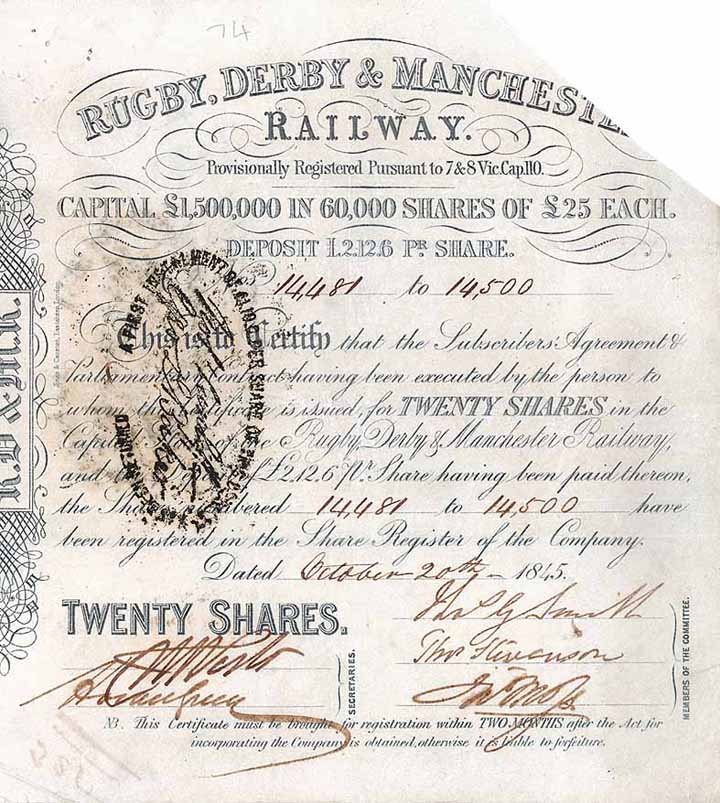 74
RUGBY, DERBY & MANCHESTE
RAILWAY.
Provisionally Registered Pursuant to 7 & 8 Vic. Cap. 110.
CAPITAL £1,500,000 IN 60,000 SHARES OF £25 EACH.
DEPOSIT £2.12.6 PR SHARE.
14,481 to 14,500
This is to Certify that the Subscribers Agreement &
Parliamentary Contract having been executed by the person to
whom this Certificate is issued, for TWENTY SHARES in the
Capital of the Rugby, Derby & Manchester Railway,
and the of £2.12.6 Pr Share having been paid thereon,
the Shares numbered 14,481 to 14,500 have
been registered in the Share Register of the Company.
Dated October 20th 1845.
TWENTY SHARES.
SECRETARIES.
Thos Stevenson
MEMBERS OF THE COMMITTEE.
NB. This Certificate must be brought for registration within TWO MONTHS after the Act for
incorporating the Company is obtained, otherwise it is liable to forfeiture.
R.D & M.R.
A FIRST INSTALMENT OF PER SHARE